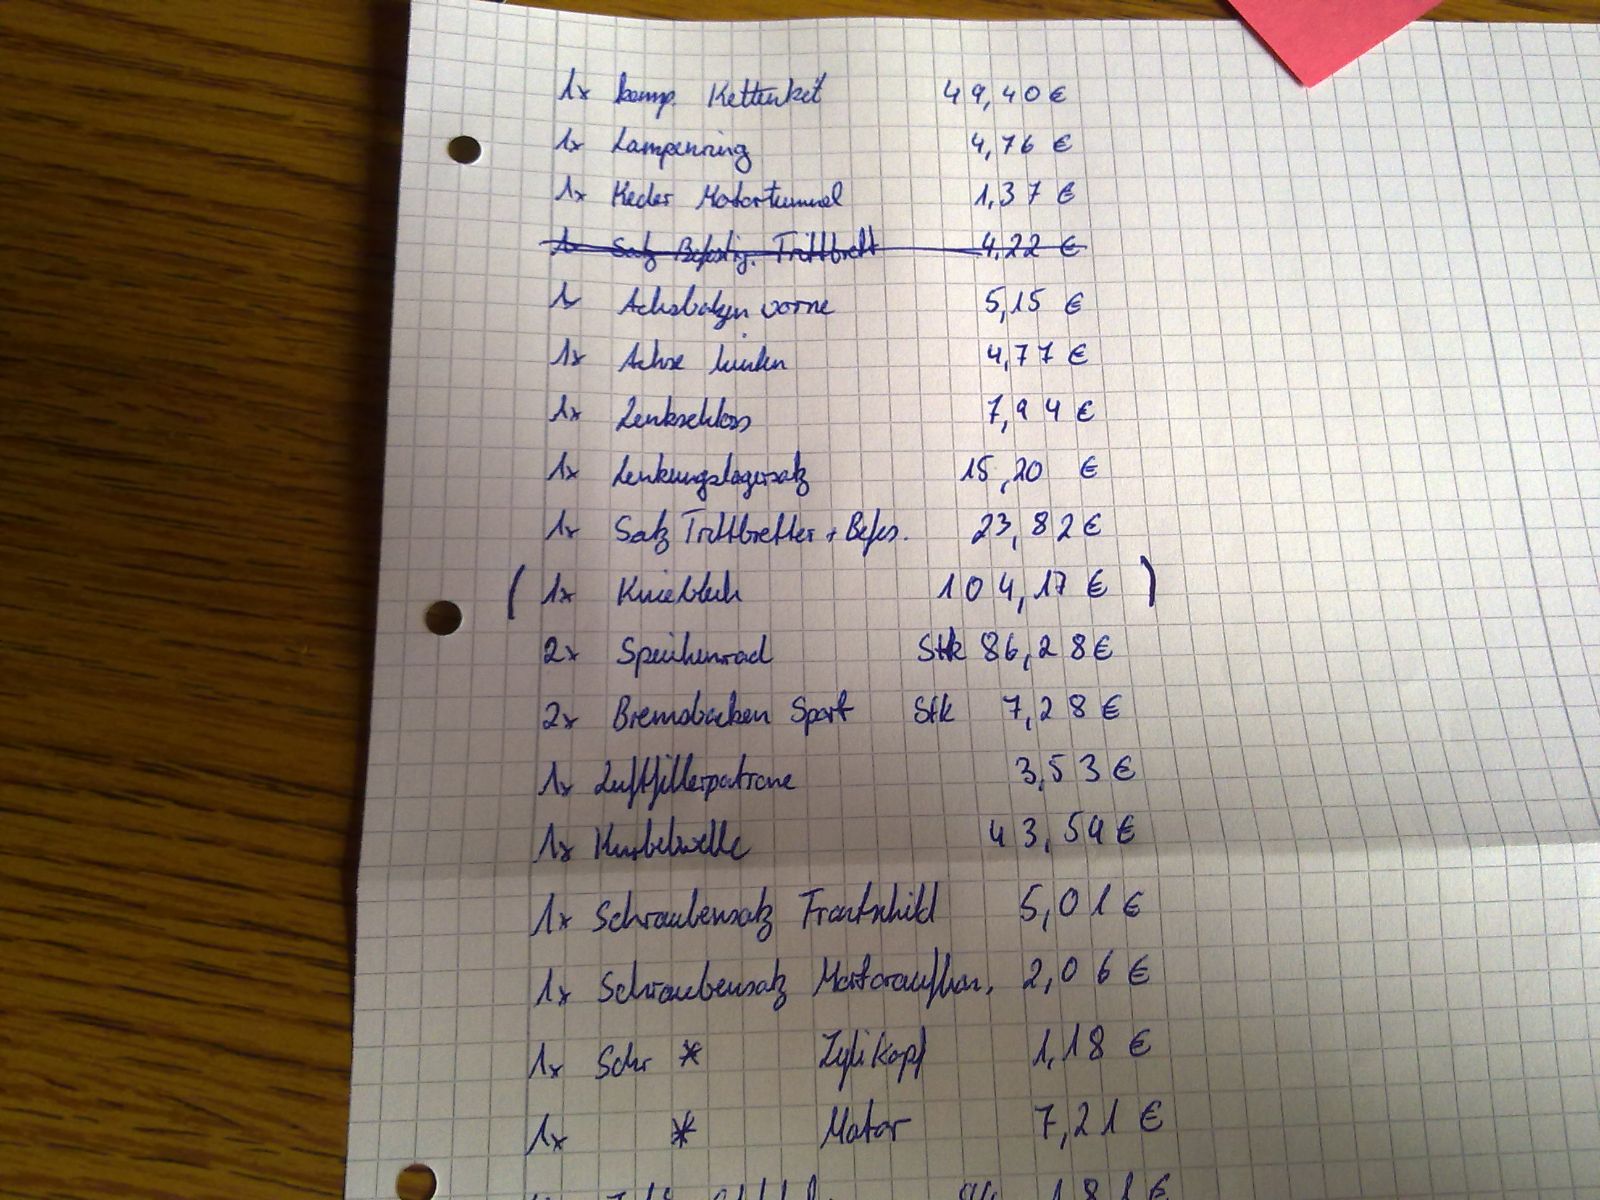 1x komp. Kettenkit 49,40 €
1x Lampenring 4,76 €
1x Keder Motortunnel 1,37 €
1x Satz Befestig. Trittbrett 4,22 €
1x Achsbolzen vorne 5,15 €
1x Achse hinten 4,77 €
1x Lenkschloss 7,94 €
1x Lenkungslagersatz 15,20 €
1x Satz Trittbretter + Befes. 23,82 €
( 1x Knieblech 104,17 € )
2x Speichenrad Stk 86,28 €
2x Bremsbacken Sport Stk 7,28 €
1x Luftfilterpatrone 3,53 €
1x Kurbelwelle 43,54 €
1x Schraubensatz Frontschild 5,01 €
1x Schraubensatz Motoraufhän. 2,06 €
1x Schr * Zylikopf 1,18 €
1x * Motor 7,21 €